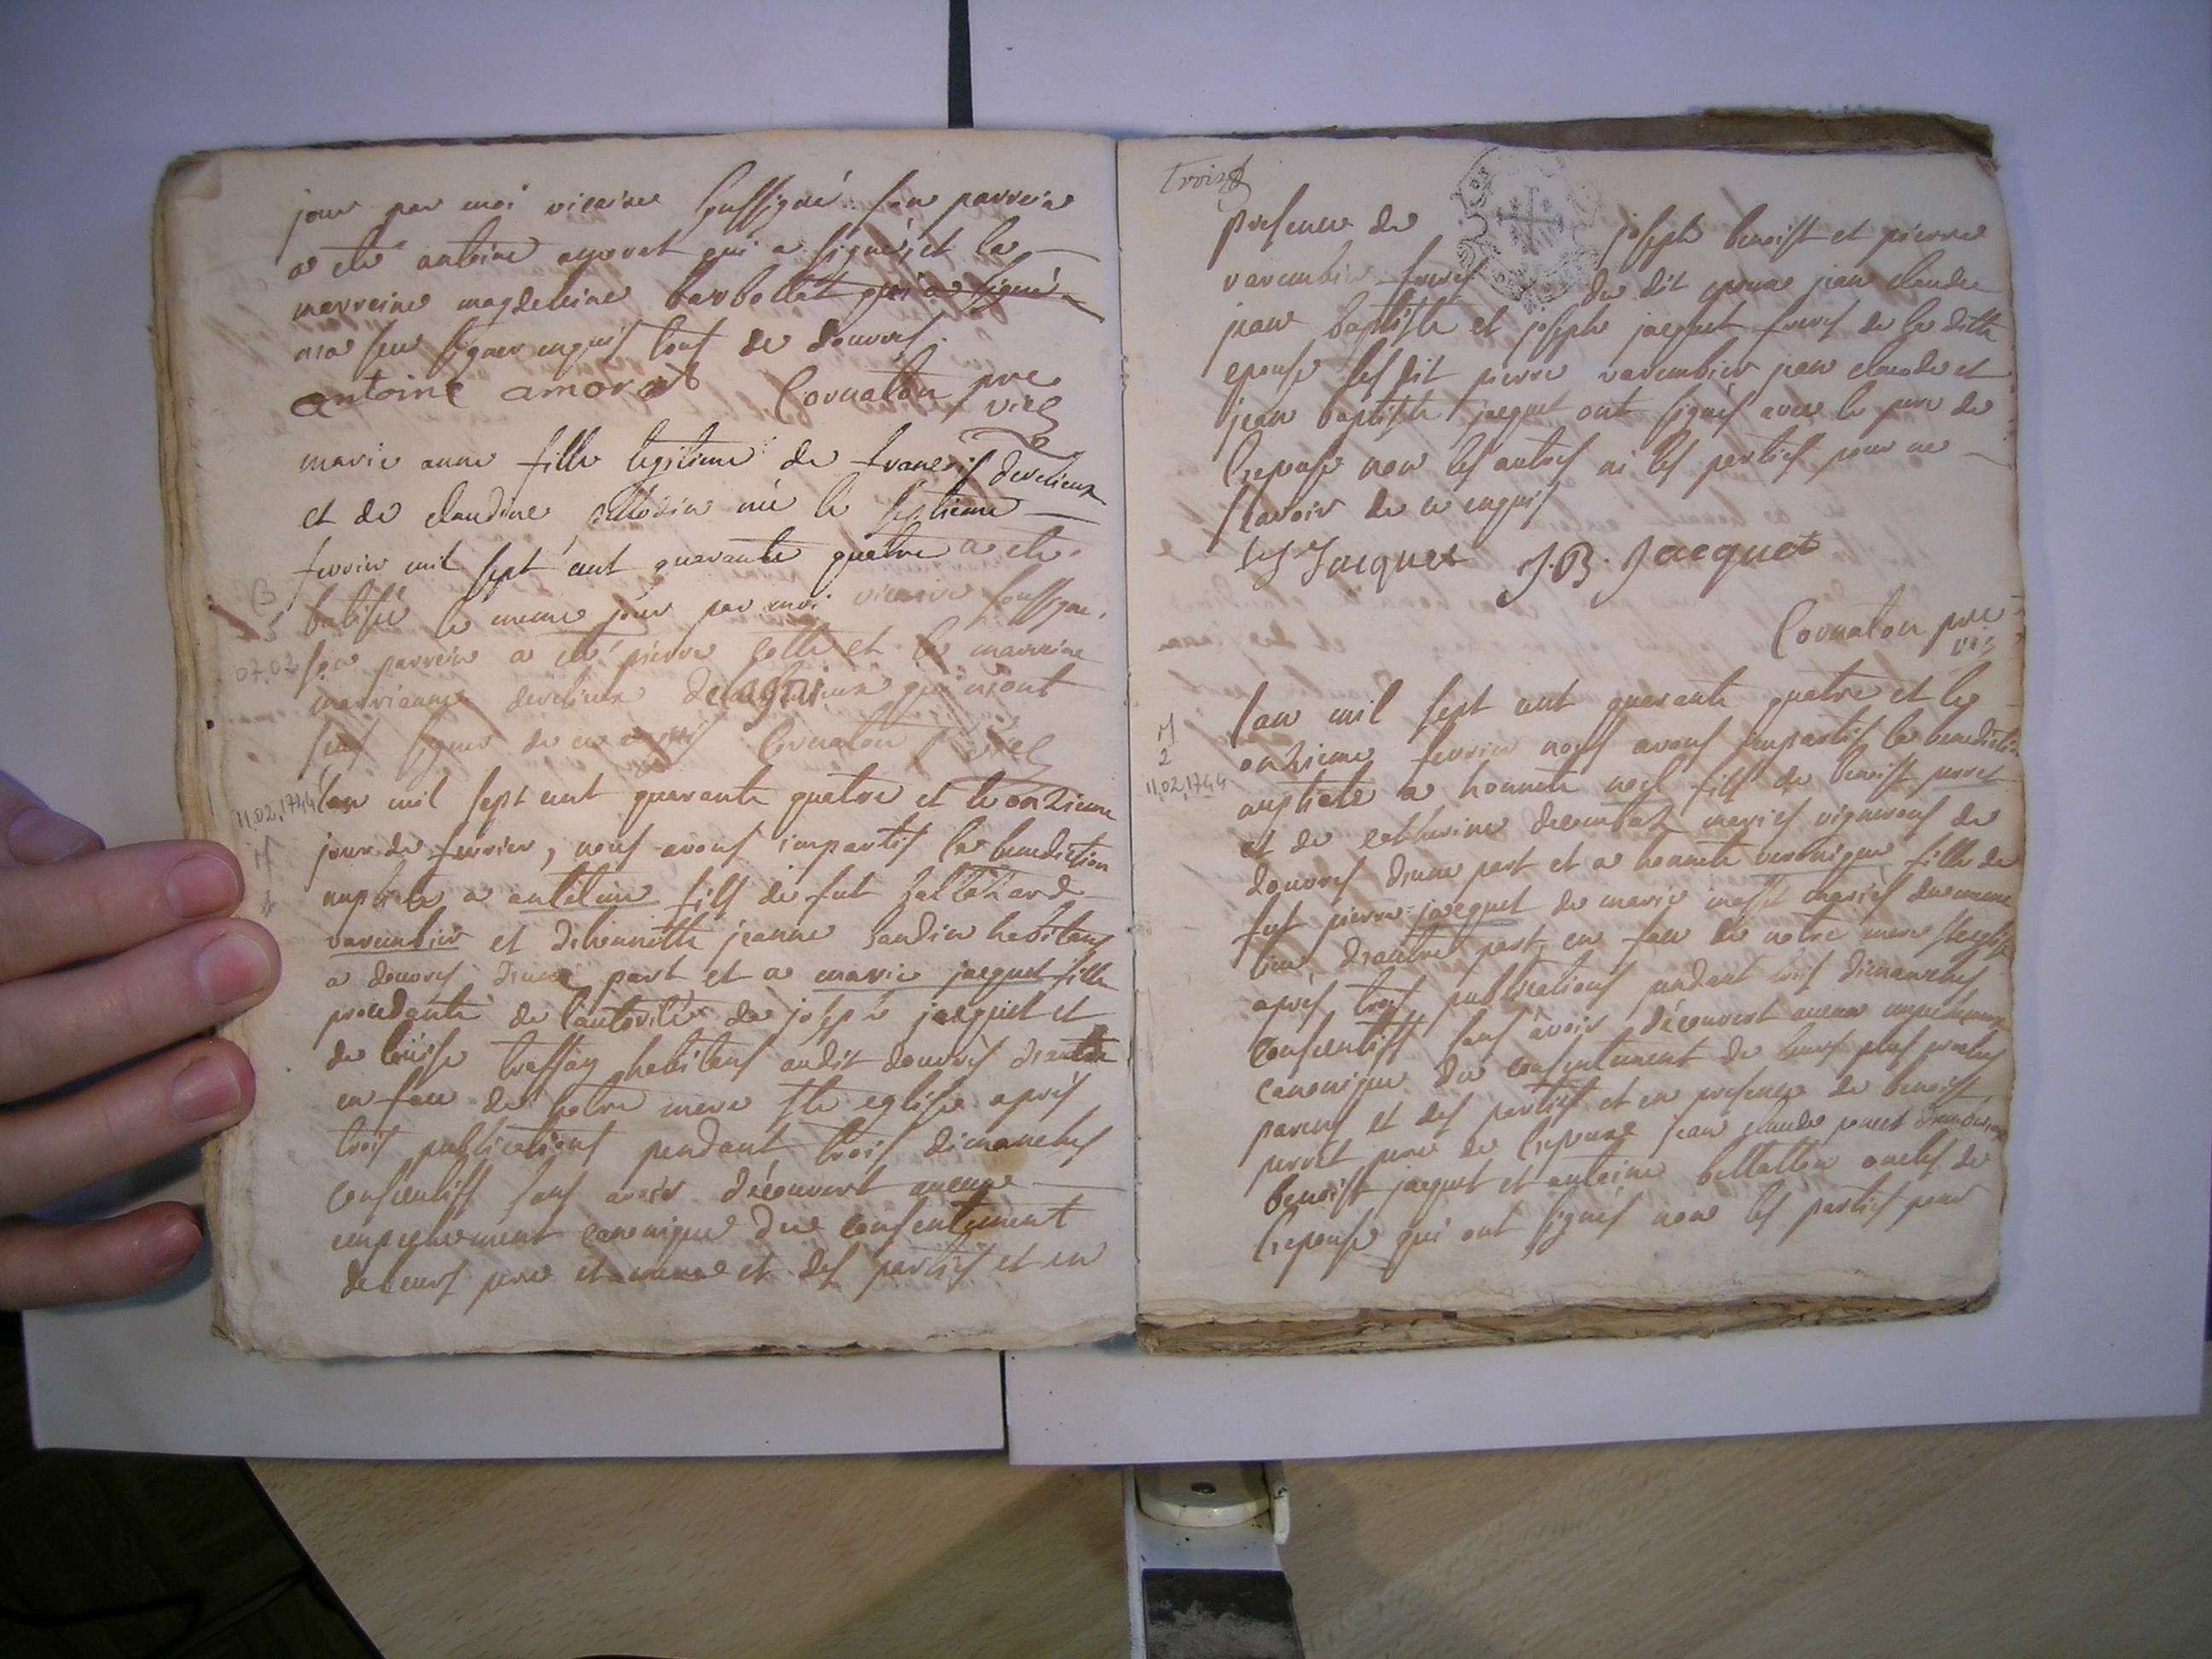 jour par moi vicaire soussigné son parrein
a été antoine amoret qui a signé, et la
marreine magdeleine barbollat qui a signé
n'a seu signer enquis tous de douvres
antoine amoret Cornaton pre vice
marie anne fille legitime de francois
et de claudine née le septieme
fevrier mil sept cent quarante quatre a eté
B
batisée le meme jour par moi vicaire soussigné
07.02
son parrein a eté pierre et la marreine
marrianne qui n'ont
seus signer de ce enquis Cornaton p. vice
11.02.1744
l'an mil sept cent quarante quatre et le onzieme
jour de fevrier, nous avons impartis la benediction
M
nuptiale a antelme fils de fut baltazard
varembier et d'honnette jeanne habitans
a douvres d'une part et a marie jacquet fille
procedante de l'autorité de joseph jacquet et
de louise trassay habitans audit douvres d'autre
en face de notre mere ste eglise après
trois publications pendant trois dimanches
consecutifs sans avoir découvert aucune
empechement canonique du consentement
de leurs pere et mere et des parties et en
Trois
presence de joseph benoist et pierre
varembier freres du dit epoux jean claude
jean baptiste et joseph jacquet freres de la ditte
epouse les dit pierre varembier jean claude et
jean baptiste jacquet ont signés avec le pere de
l'epouse non les autres ni les parties pour ne
scavoir de ce enquis
Jacquet J.B. Jacquet
Cornaton pre
vic
M
2
11.02.1744
l'an mil sept cent quarante quatre et le
onzieme fevrier nous avons impartis la benediction
nuptiale a honnete noel fils de benoist perret
et de catherine decombaz mariés vignerons de
douvres d'une part et a honnete veronique fille de
fut pierre jacquet de marie mariés du meme
lieu d'autre part, en face de notre mere ste eglise
après trois publications pendant trois dimanches
consecutifs sans avoir découvert aucun empechement
canonique du consentement de leurs plus proches
parens et des parties et en presence de benoist
perret pere de l'epoux jean claude
benoist jacquet et antoine oncles de
l'epouse qui ont signés non les parties pour